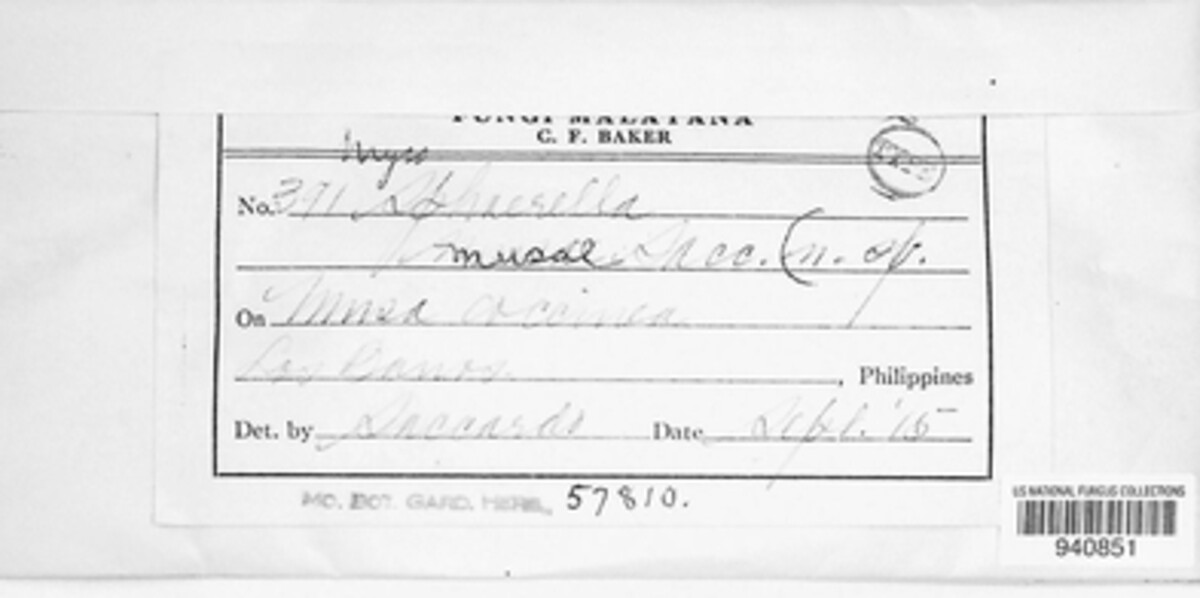 FUNGI MALAYANA
C. F. BAKER
Myco
No. 391 Sphaerella
musae Sacc. (n. sp.
On Musa coccinea
Los Banos, Philippines
Det. by Saccardo Date Sept. '15
MO. BOT. GARD. HERB. 57810.
US NATIONAL FUNGUS COLLECTIONS
940851